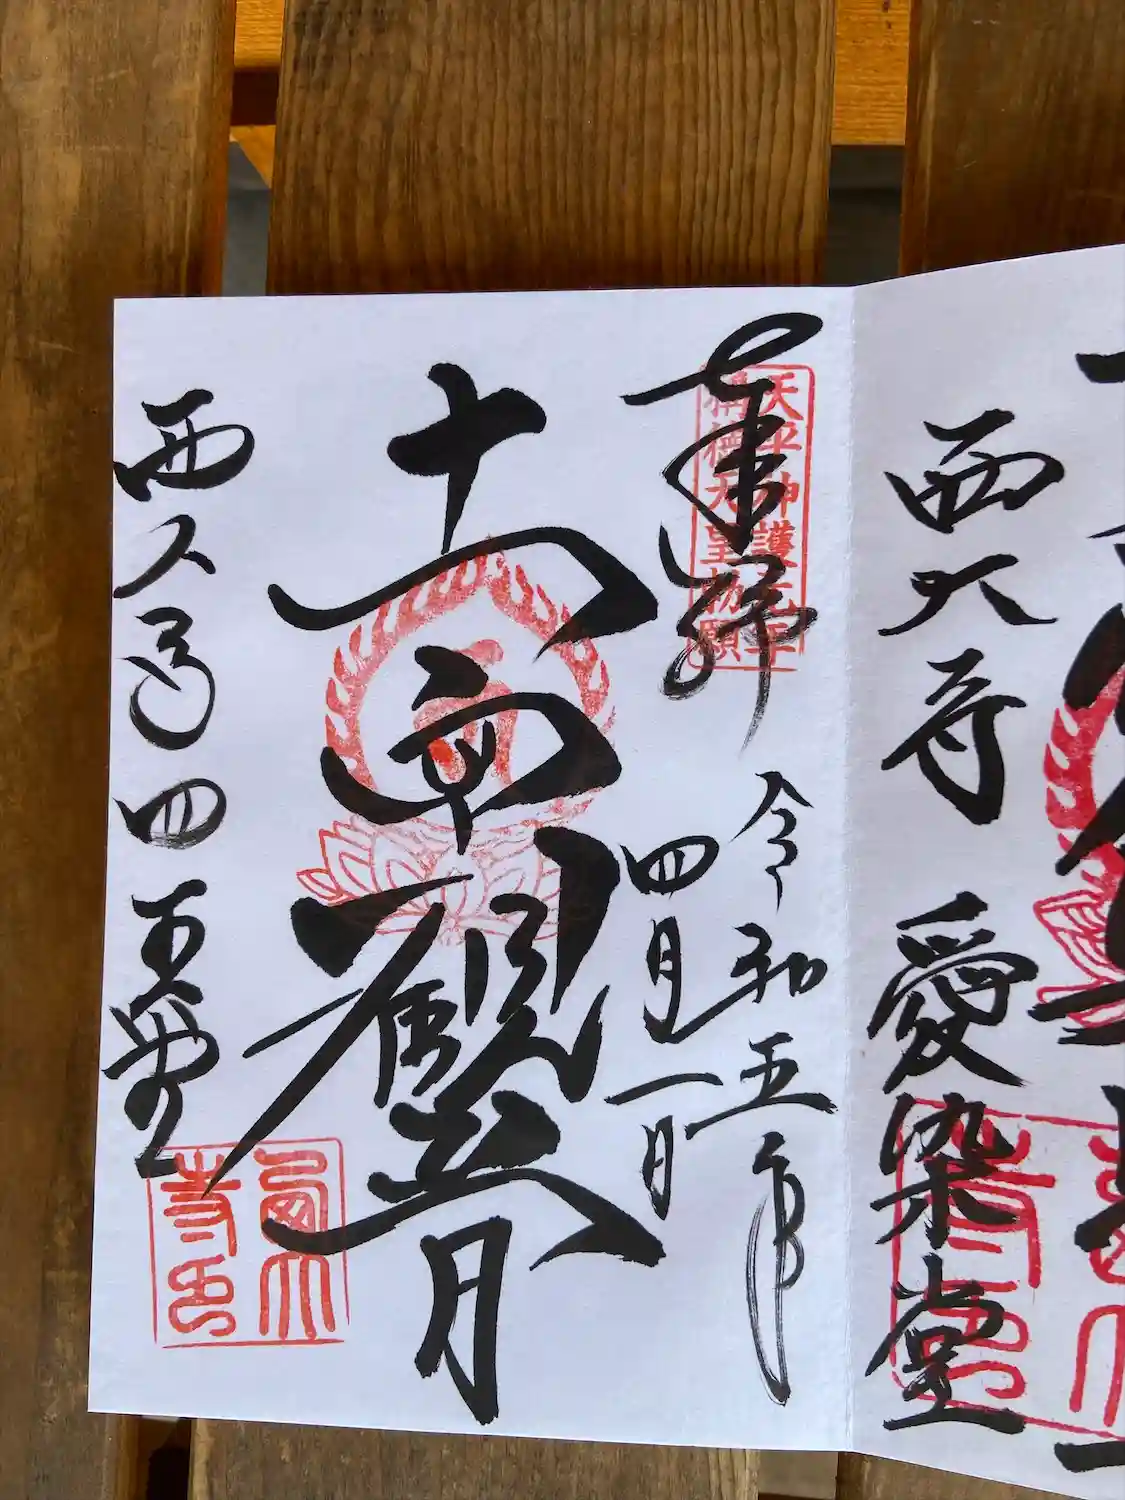 西大寺 愛染堂
奉拝
天平神護元年
稱徳天皇勅願
令和五年
四月一日
十一面観音
西大寺 四王堂
西大寺印